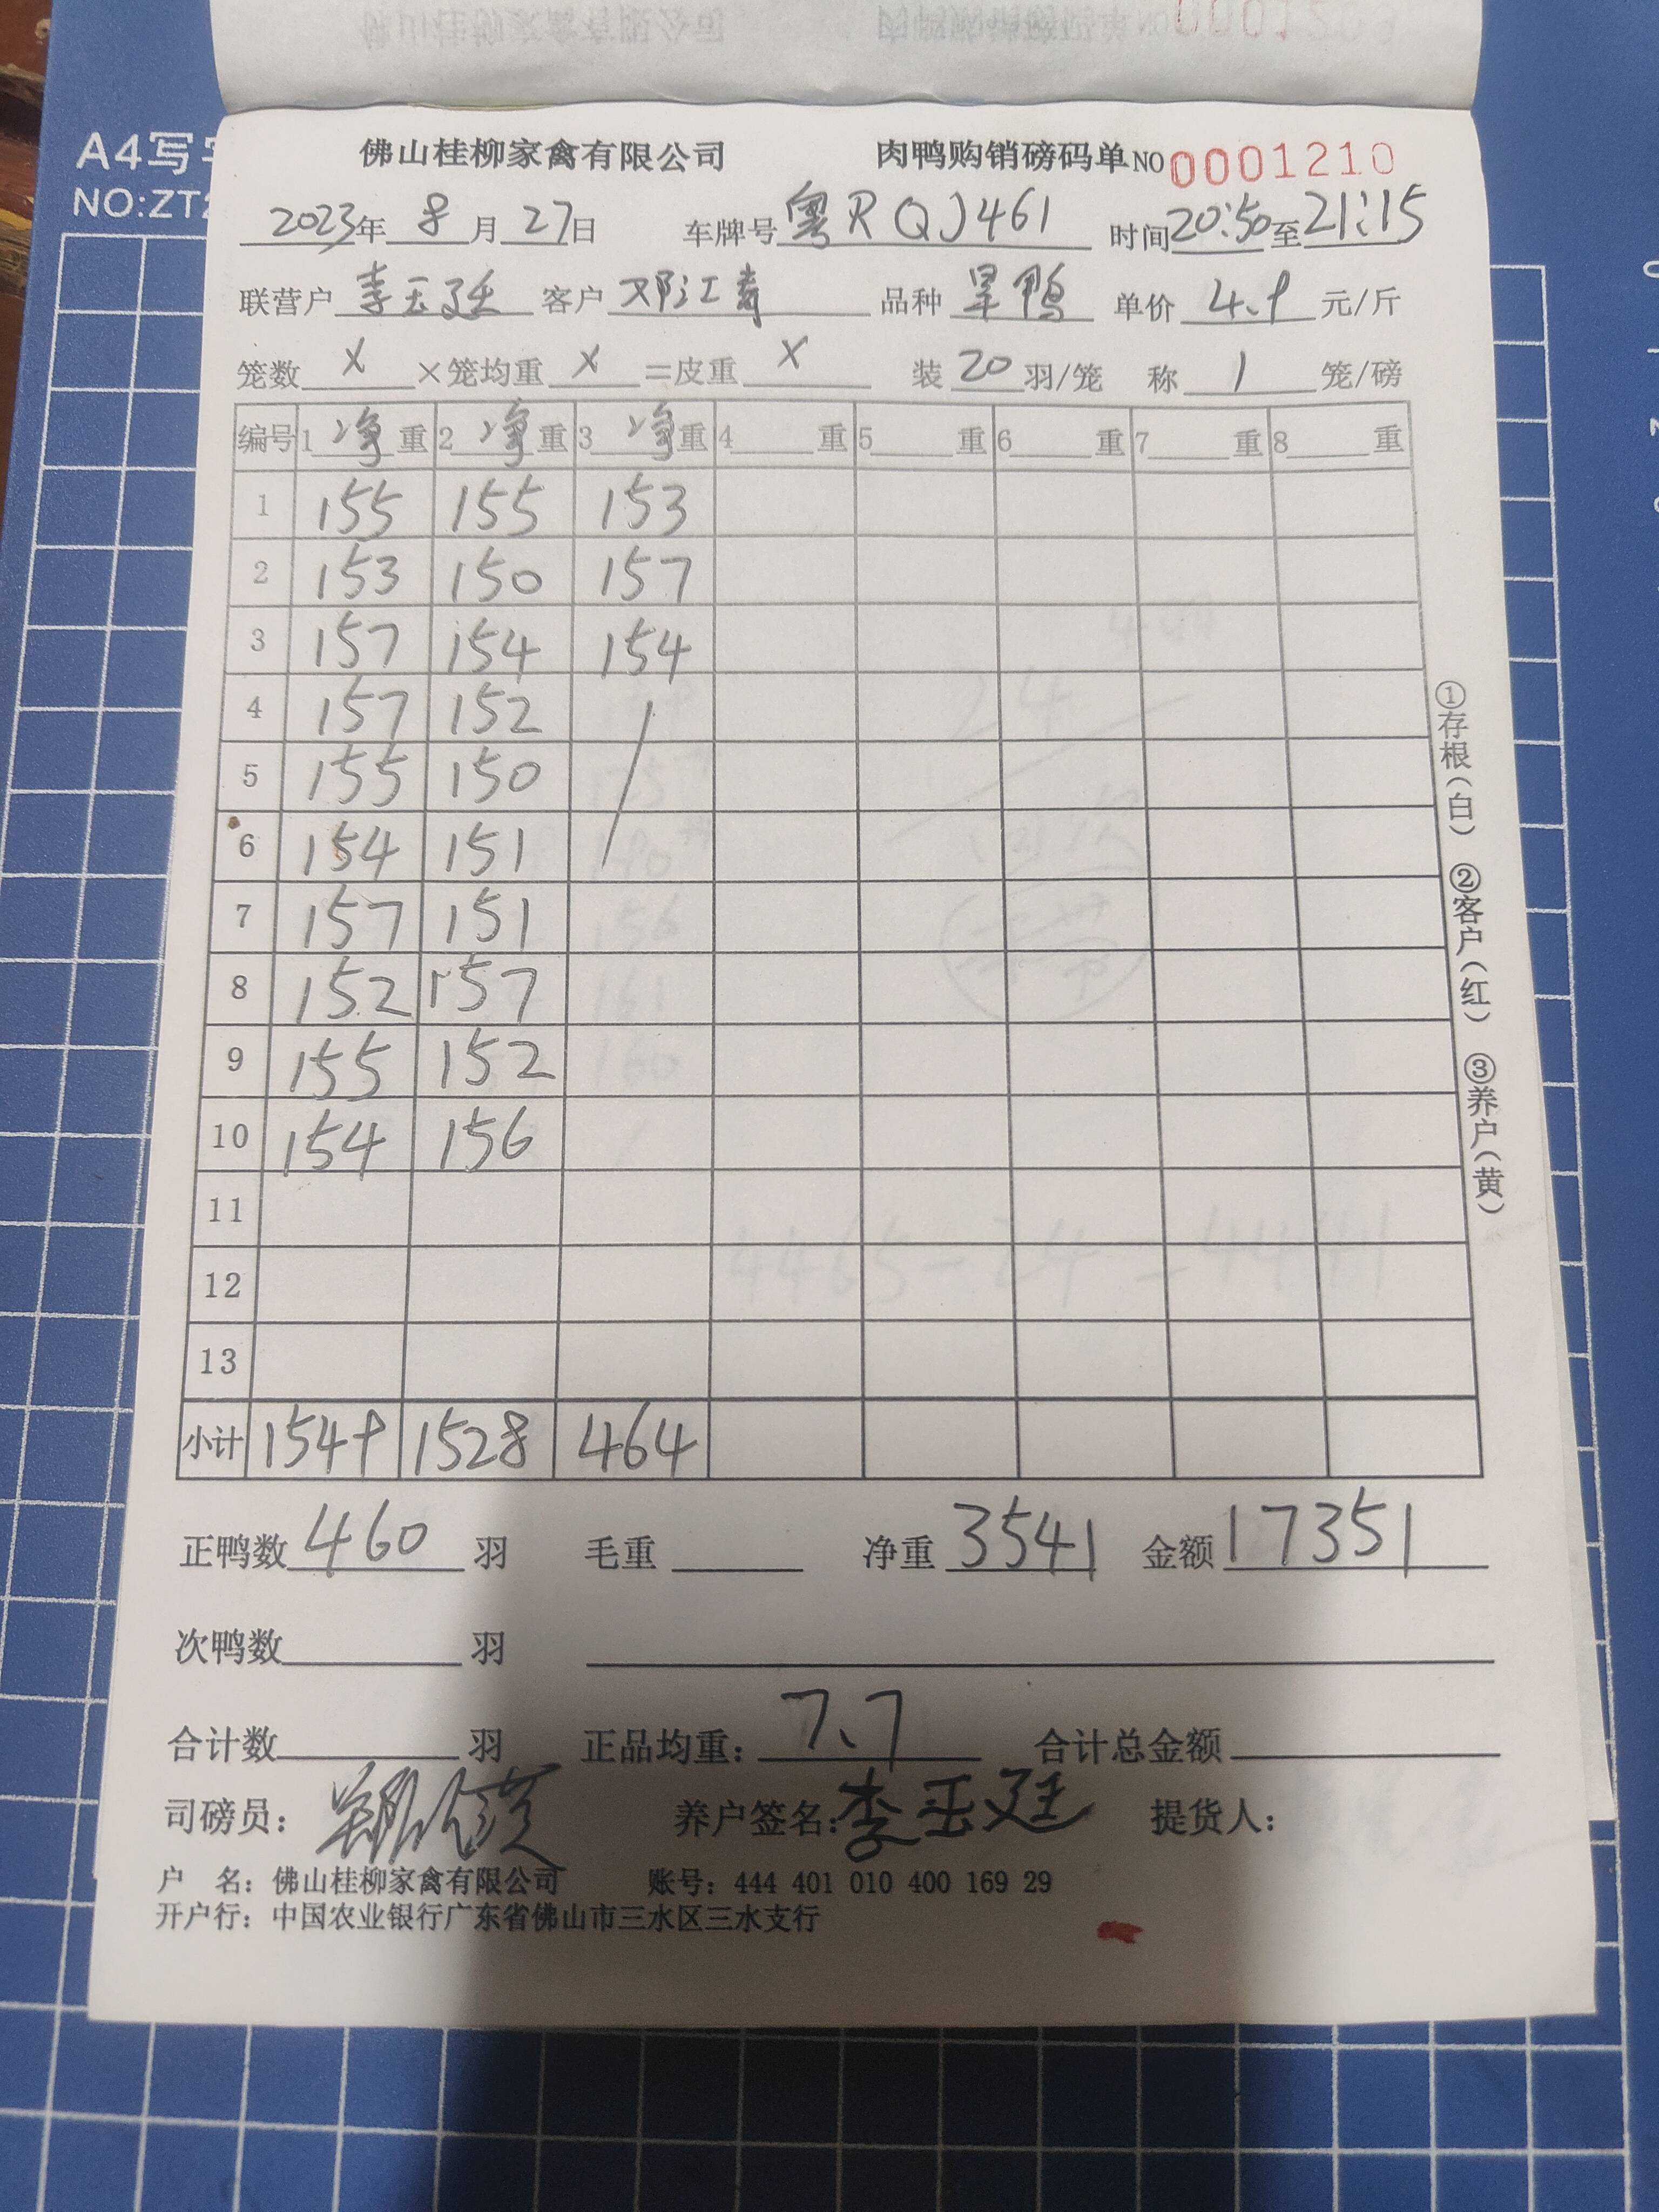 A4写字
NO:ZT2
佛山桂柳家禽有限公司 肉鸭购销磅码单NO 0001210
2023年 8月27日 车牌号 粤RQJ461 时间20:50至21:15
联营户 李玉廷 客户 邓江 品种 旱鸭 单价 4.9 元/斤
笼数 X ×笼均重 X =皮重 X 装 20 羽/笼 称 1 笼/磅
编号 1 净 重 2 净 重 3 净 重 4 重 5 重 6 重 7 重 8 重
1 155 155 153
2 153 150 157
3 157 154 154
4 157 152
5 155 150
6 154 151
7 157 151
8 152 157
9 155 152
10 154 156
11
12
13
小计 1549 1528 464
正鸭数 460 羽 毛重 净重 3541 金额 17351
次鸭数 羽
合计数 羽 正品均重: 7.7 合计总金额
司磅员: 养户签名: 李玉廷 提货人:
户 名: 佛山桂柳家禽有限公司 账号: 444 401 010 400 169 29
开户行: 中国农业银行广东省佛山市三水区三水支行
①存根(白) ②客户(红) ③养户(黄)